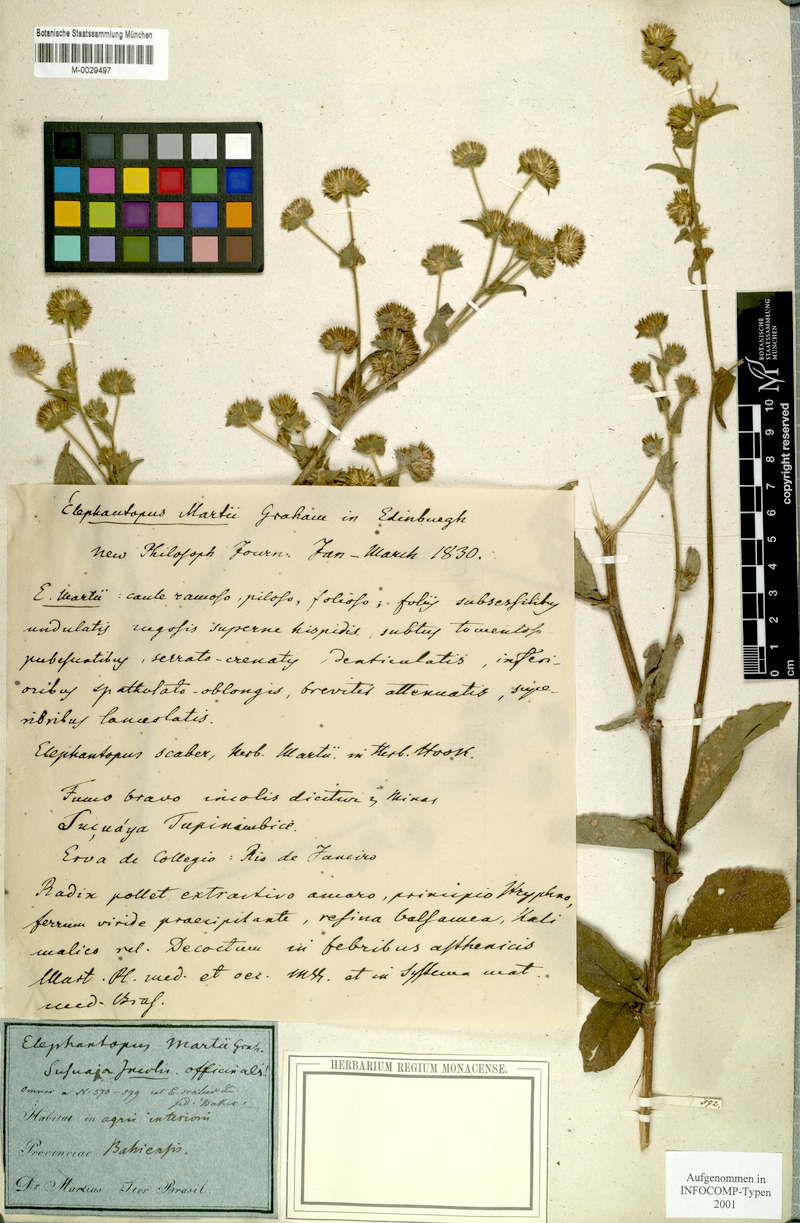 Botanische Staatssammlung München
M-0029497
BOTANISCHE
STAATSSAMMLUNG
MÜNCHEN
0 1 2 3 4 5 6 7 8 9 10
cm
copyright reserved
Elephantopus Martii Graham in Edinburgh
New Philosoph Journ: Jan-March 1830.
E. Martii: caule ramoso, piloso, folioso, foliis subsessilibus
undulatis rugosis superne hispidis, subtus tomentoso
pubescentibus, serrato-crenatis, denticulatis, inferi-
oribus spathulato-oblongis, breviter attenuatis, supe-
rioribus lanceolatis.
Elephantopus scaber, Herb. Martii. in Herb. Hook.
Fumo bravo incolis dicitur in Minas
Suçuáya Tupinambice.
Erva de Collegio: Rio de Janeiro
Radix pollet extractivo amaro, principio
ferrum viride praecipitante, resina balsamea, Kali
malico rel. Decoctum in febribus asthenicis
Mart. Pl. med. et oec. et in Systema mat.
med. Bras.
Elephantopus Martii Grah.
Susuaia Incolis. officinalis!
omnes a N. 570-579 est E. scaber
Habitat in agris interioris
Provinciae Bahiensis.
Dr Martius Iter Brasil
HERBARIUM REGIUM MONACENSE.
572.
Aufgenommen in
INFOCOMP-Typen
2001